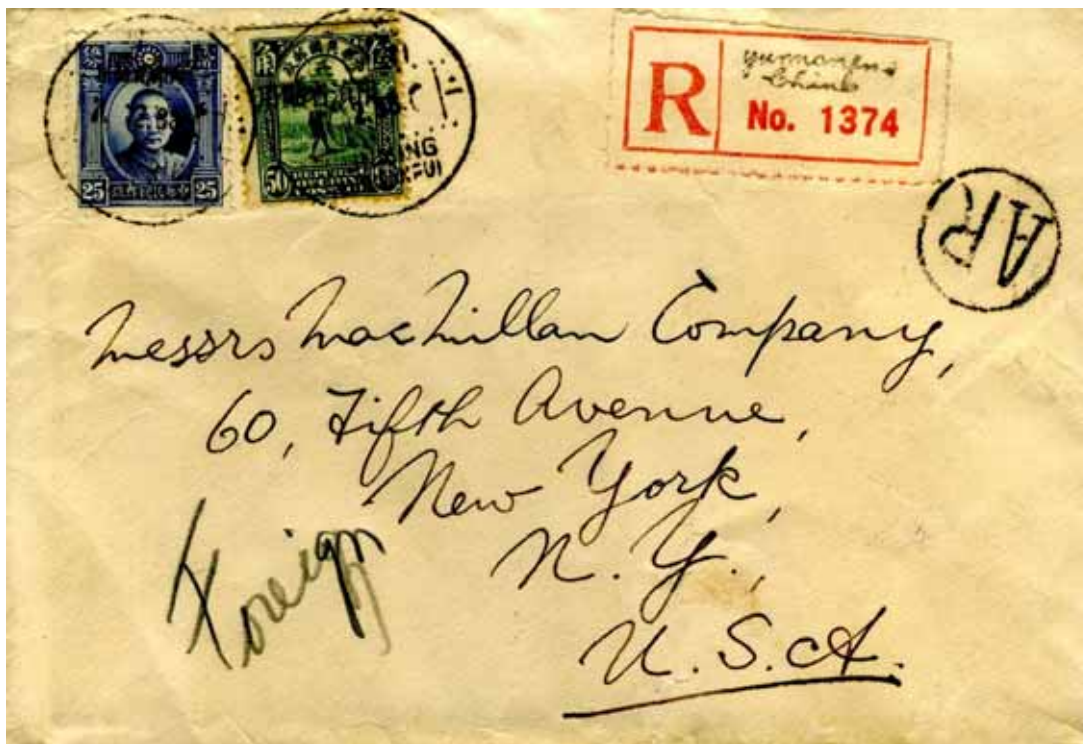 25 25
50
R
China
No. 1374
AR
Messrs MacMillan Company,
60, Fifth Avenue,
New York,
N. Y.,
U. S. A.
Foreign